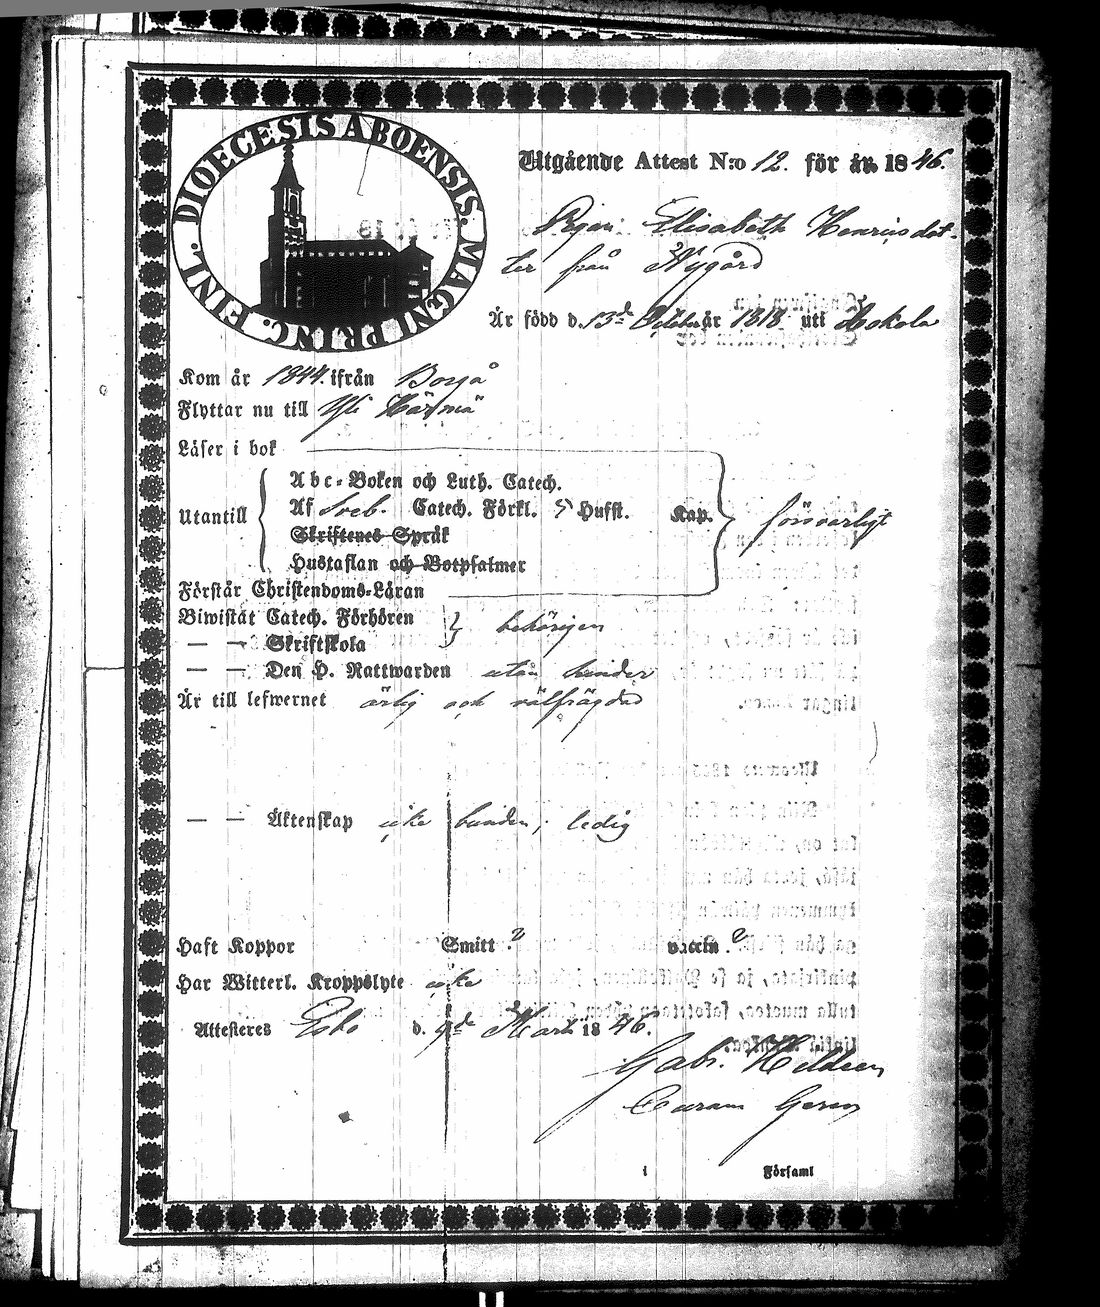 DIOECESIS ABOENSIS. MAGNI PRINC. FINL.
Utgående Attest N:o 12. för år 1846.
Pigan Elisabeth Henricsdot-
ter från Nygård
Är född d. 13de October 1818 uti Askola
Kom år 1844. ifrån Borgå
Flyttar nu till Yli Härmä
Läser i bok
Utantill
Abc-Boken och Luth. Catech.
Af Sveb. Catech. Förkl. 5 Hufst. Kap. försvarligt
Skriftenes Språk
Hustaflan och Botpsalmer
Förstår Christendoms-Läran
Biwistat Catech. Förhören
— — Skriftskola behörigen
— — Den H. Nattwarden utan hinder
Är till lefwernet ärlig och välfrägdad
— — Äktenskap icke bunden; ledig
Haft Koppor Smitt ? vaccin. ?
Har Witterl. Kroppslyte icke
Attesteres Esbo d. 9de Mart. 1846.
Gabr. Helldeen
Curam Gerens
i Församl